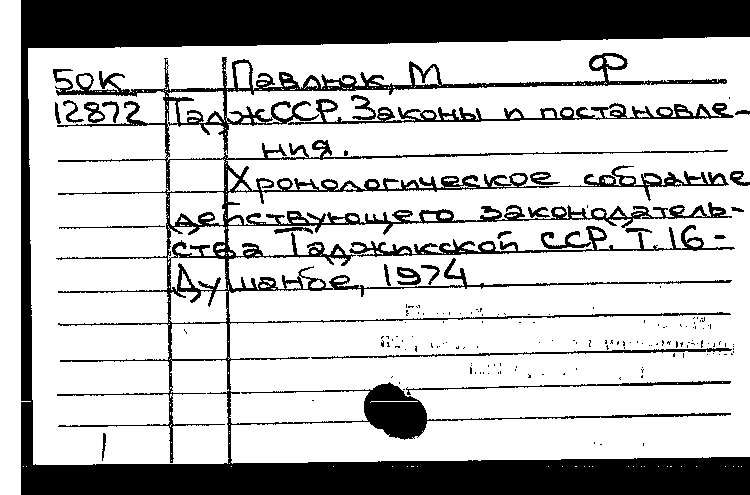 50К Павлюк, М Ф
12872 ТаджССР. Законы и постановле-
ния.
Хронологическое собрание
действующего законодатель-
ства Таджикской ССР. Т. 16 -
Душанбе, 1974.